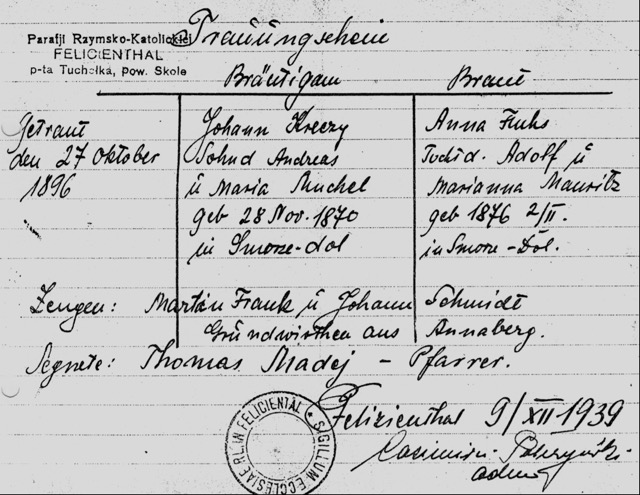 Parafji Rzymsko-Katolickiej
FELICIENTHAL
p-ta Tuchełka, pow. Skole
Trauungschein
Bräutigam Braut
Getraut Johann Kreczy Anna Fuhs
den 27 Oktober Sohn d Andreas Tocht d. Adolf ü
1896 ü Maria Muchel Marianna Mauritz
geb 28 Nov. 1870 geb 1876 2/II.
in Smorze-dol in Smorze-Dol.
Zeugen: Martin Frank ü Johann Schmidt
Grundwirthen aus Annaberg.
Segnete: Thomas Madej - Pfarrer.
Felizienthal 9/XII-1939
Casimir
SIGILLUM ECCLESIAE R.L. IN FELICIENTAL